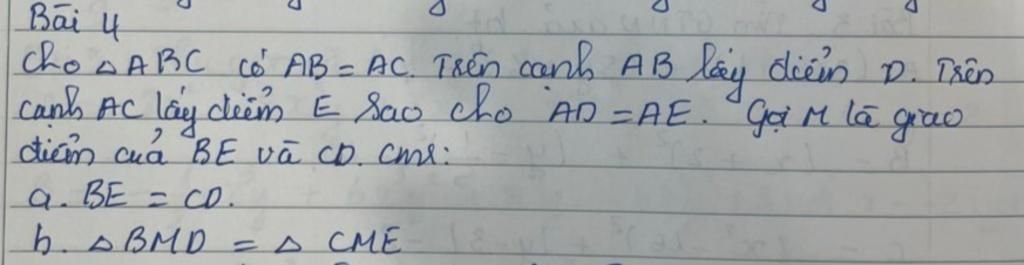 Bài 4
Cho △ABC có AB = AC. Trên cạnh AB lấy điểm D. Trên
cạnh AC lấy điểm E sao cho AD = AE. Gọi M là giao
điểm của BE và CD. Cmr:
a. BE = CD.
b. △BMD = △CME